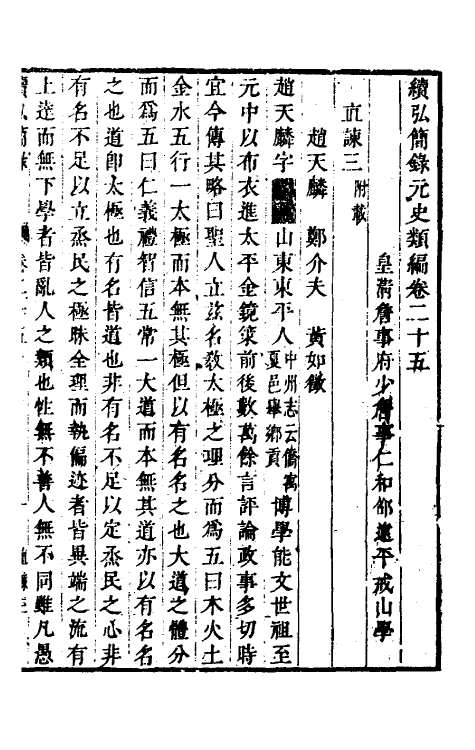 續弘簡錄元史類編卷二十五
皇淸詹事府少詹事仁和邵遠平戒山學
直諫三附載
趙天麟　鄭介夫　黃如徵
趙天麟字山東東平人中州志云僑寓夏邑舉鄉貢博學能文世祖至
元中以布衣進太平金鏡策前後數萬餘言評論政事多切時
宜今傳其略曰聖人立法名敎太極之理分而爲五曰木火土
金水五行一太極而本無其極但以有名名之也大道之體分
而爲五曰仁義禮智信五常一大道而本無其道亦以有名名
之也道卽太極也有名皆道也非有名不足以定烝民之心非
有名不足以立烝民之極昧全理而執偏迹者皆異端之流有
上逹而無下學者皆亂人之類也性無不善人無不同雖凡愚